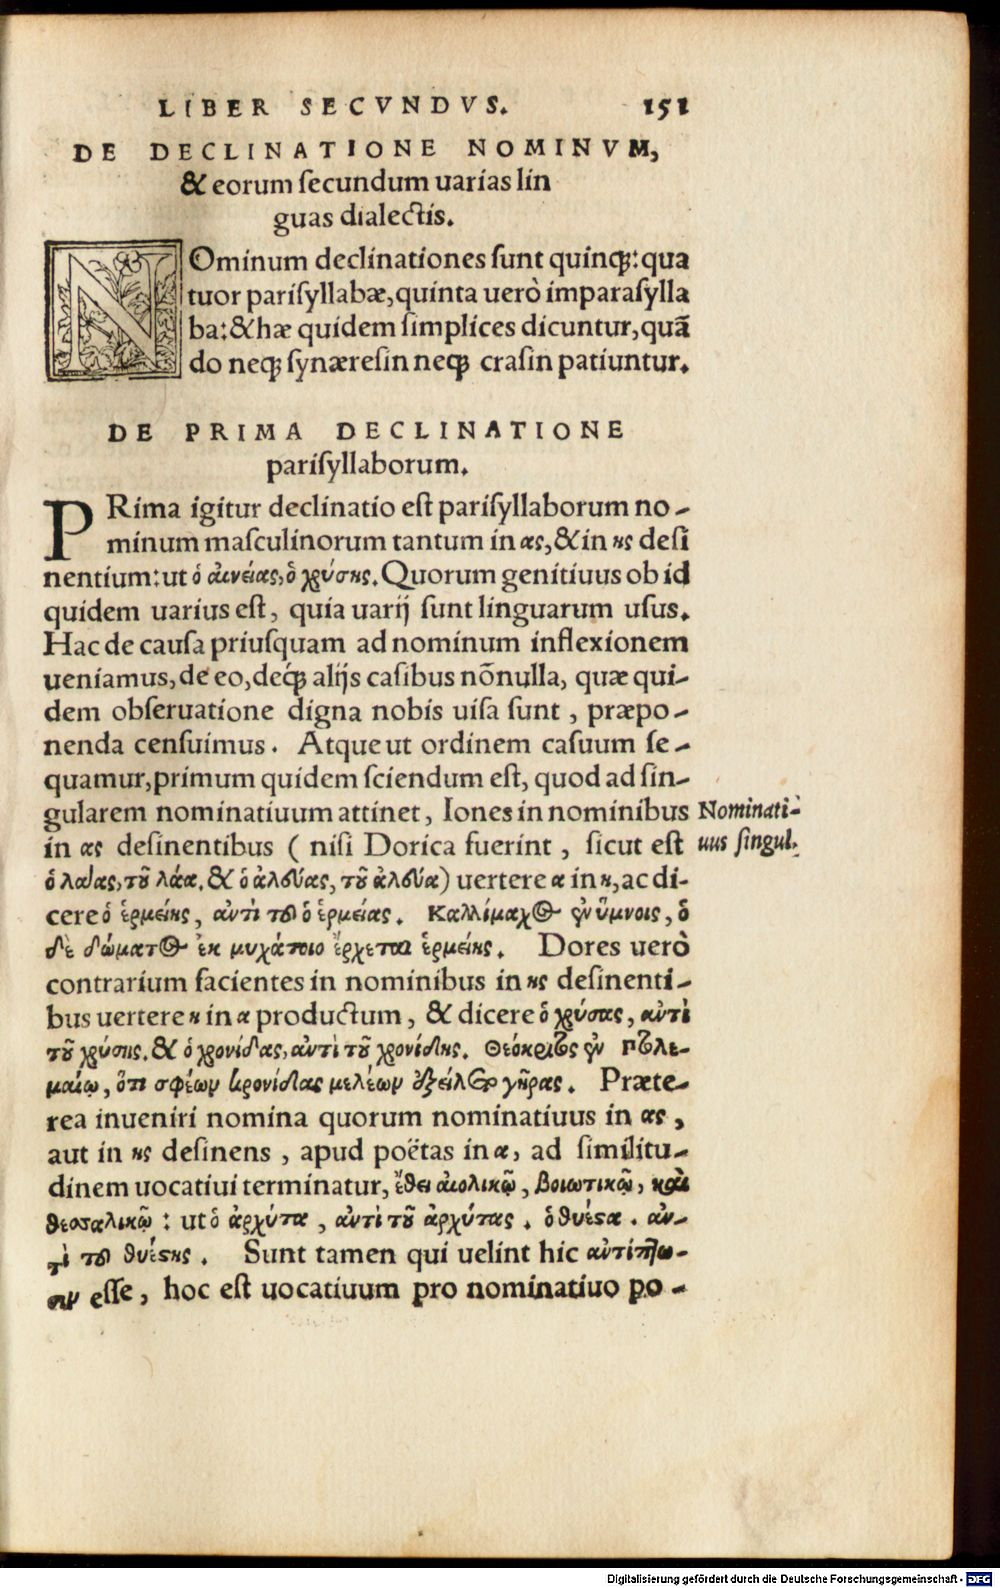 LIBER SECVNDVS. 151
DE DECLINATIONE NOMINVM,
& eorum ſecundum uarias lin
guas dialectis.
NOminum declinationes ſunt quinq;: qua
tuor pariſyllabæ, quinta uerò imparaſylla
ba: & hæ quidem ſimplices dicuntur, quā
do neq; ſynæreſin neq; craſin patiuntur.
DE PRIMA DECLINATIONE
pariſyllaborum.
PRima igitur declinatio eſt pariſyllaborum no-
minum maſculinorum tantum in ας, & in ης deſi
nentium: ut ὁ αἰνείας, ὁ χρύσης. Quorum genitiuus ob id
quidem uarius eſt, quia uarij ſunt linguarum uſus.
Hac de cauſa priuſquam ad nominum inflexionem
ueniamus, de eo, deq; alijs caſibus nōnulla, quæ qui-
dem obſeruatione digna nobis uiſa ſunt, præpo-
nenda cenſuimus. Atque ut ordinem caſuum ſe-
quamur, primum quidem ſciendum eſt, quod ad ſin-
gularem nominatiuum attinet, Iones in nominibus
Nominati-
in ας deſinentibus (niſi Dorica fuerint, ſicut eſt
uus ſingul.
ὁ λάας, τοῦ λάα. & ὁ ἀλσύας, τοῦ ἀλσύα) uertere α in η, ac di-
cere ὁ ἑρμείης, ἀντὶ τοῦ ὁ ἑρμείας. Καλλίμαχος ἐν ὕμνοις, ὁ
δὲ δώματος ἐκ μυχάτοιο ἔρχεται ἑρμείης. Dores uerò
contrarium facientes in nominibus in ης deſinenti-
bus uertere η in α productum, & dicere ὁ χρύσας, ἀντὶ
τοῦ χρύσης. & ὁ χρονίδας, ἀντὶ τοῦ χρονίδης. Θεόκριτος ἐν Πτολε-
μαίῳ, ὅτι σφέων κρονίδας μελέων ἐξείλετο γῆρας. Præte-
rea inueniri nomina quorum nominatiuus in ας,
aut in ης deſinens, apud poëtas in α, ad ſimilitu-
dinem uocatiui terminatur, ἔθει αἰολικῷ, βοιωτικῷ, καὶ
θεσσαλικῷ: ut ὁ ἀρχύτα, ἀντὶ τοῦ ἀρχύτας. ὁ θυέστα. ἀν-
τὶ τοῦ θυέστης. Sunt tamen qui uelint hic ἀντίπτω-
σιν eſſe, hoc eſt uocatiuum pro nominatiuo po-
Digitalisierung gefördert durch die Deutsche Forschungsgemeinschaft - DFG